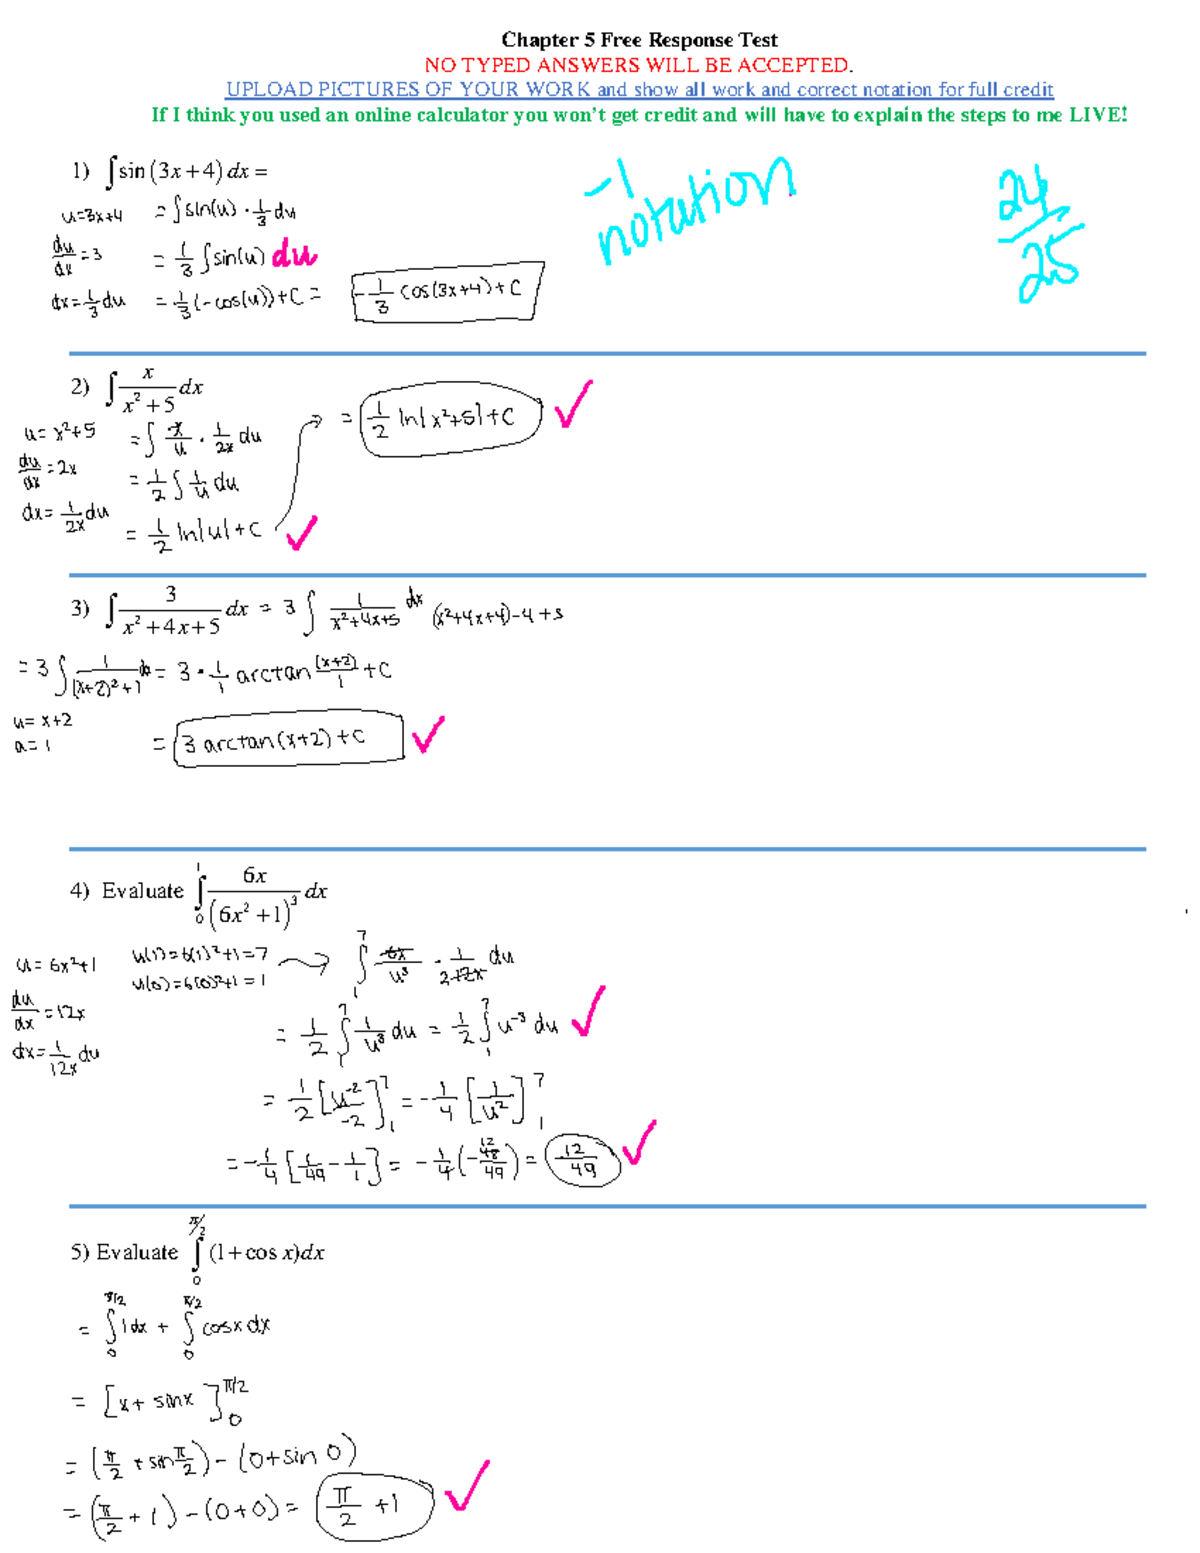 Chapter 5 Free Response Test
NO TYPED ANSWERS WILL BE ACCEPTED.
UPLOAD PICTURES OF YOUR WORK and show all work and correct notation for full credit
If I think you used an online calculator you won't get credit and will have to explain the steps to me LIVE!
1) ∫ sin (3x + 4) dx =
-1 notation
24/25
u=3x+4 = ∫ sin(u) · 1/3 du
du/dx = 3 = 1/3 ∫ sin(u) du
dx = 1/3 du = 1/3 (-cos(u)) + C = -1/3 cos(3x+4) + C
2) ∫ x/(x² + 5) dx
u = x²+5 = ∫ x/u · 1/2x du
du/dx = 2x = 1/2 ∫ 1/u du
dx = 1/2x du = 1/2 ln|u| + C
= 1/2 ln|x²+5| + C ✓
✓
3) ∫ 3/(x² + 4x + 5) dx = 3 ∫ 1/(x²+4x+5) dx (x²+4x+4)-4+5
= 3 ∫ 1/((x+2)²+1) dx = 3 · 1/1 arctan (x+2)/1 + C
u = x+2
a = 1 = 3 arctan(x+2) + C ✓
4) Evaluate ∫₀¹ 6x/(6x² + 1)³ dx
u = 6x²+1 u(1) = 6(1)²+1 = 7 → ∫₁⁷ 6x/u³ · 1/(2 12x) du
u(0) = 6(0)²+1 = 1
du/dx = 12x = 1/2 ∫₁⁷ 1/u³ du = 1/2 ∫₁⁷ u⁻³ du ✓
dx = 1/12x du
= 1/2 [u⁻²/-2]₁⁷ = -1/4 [1/u²]₁⁷
= -1/4 [1/49 - 1/1] = -1/4 (- 12 48/49) = 12/49 ✓
5) Evaluate ∫₀^(π/2) (1 + cos x)dx
= ∫₀^(π/2) 1dx + ∫₀^(π/2) cosx dx
= [x + sinx]₀^(π/2)
= (π/2 + sin π/2) - (0 + sin 0)
= (π/2 + 1) - (0+0) = π/2 + 1 ✓